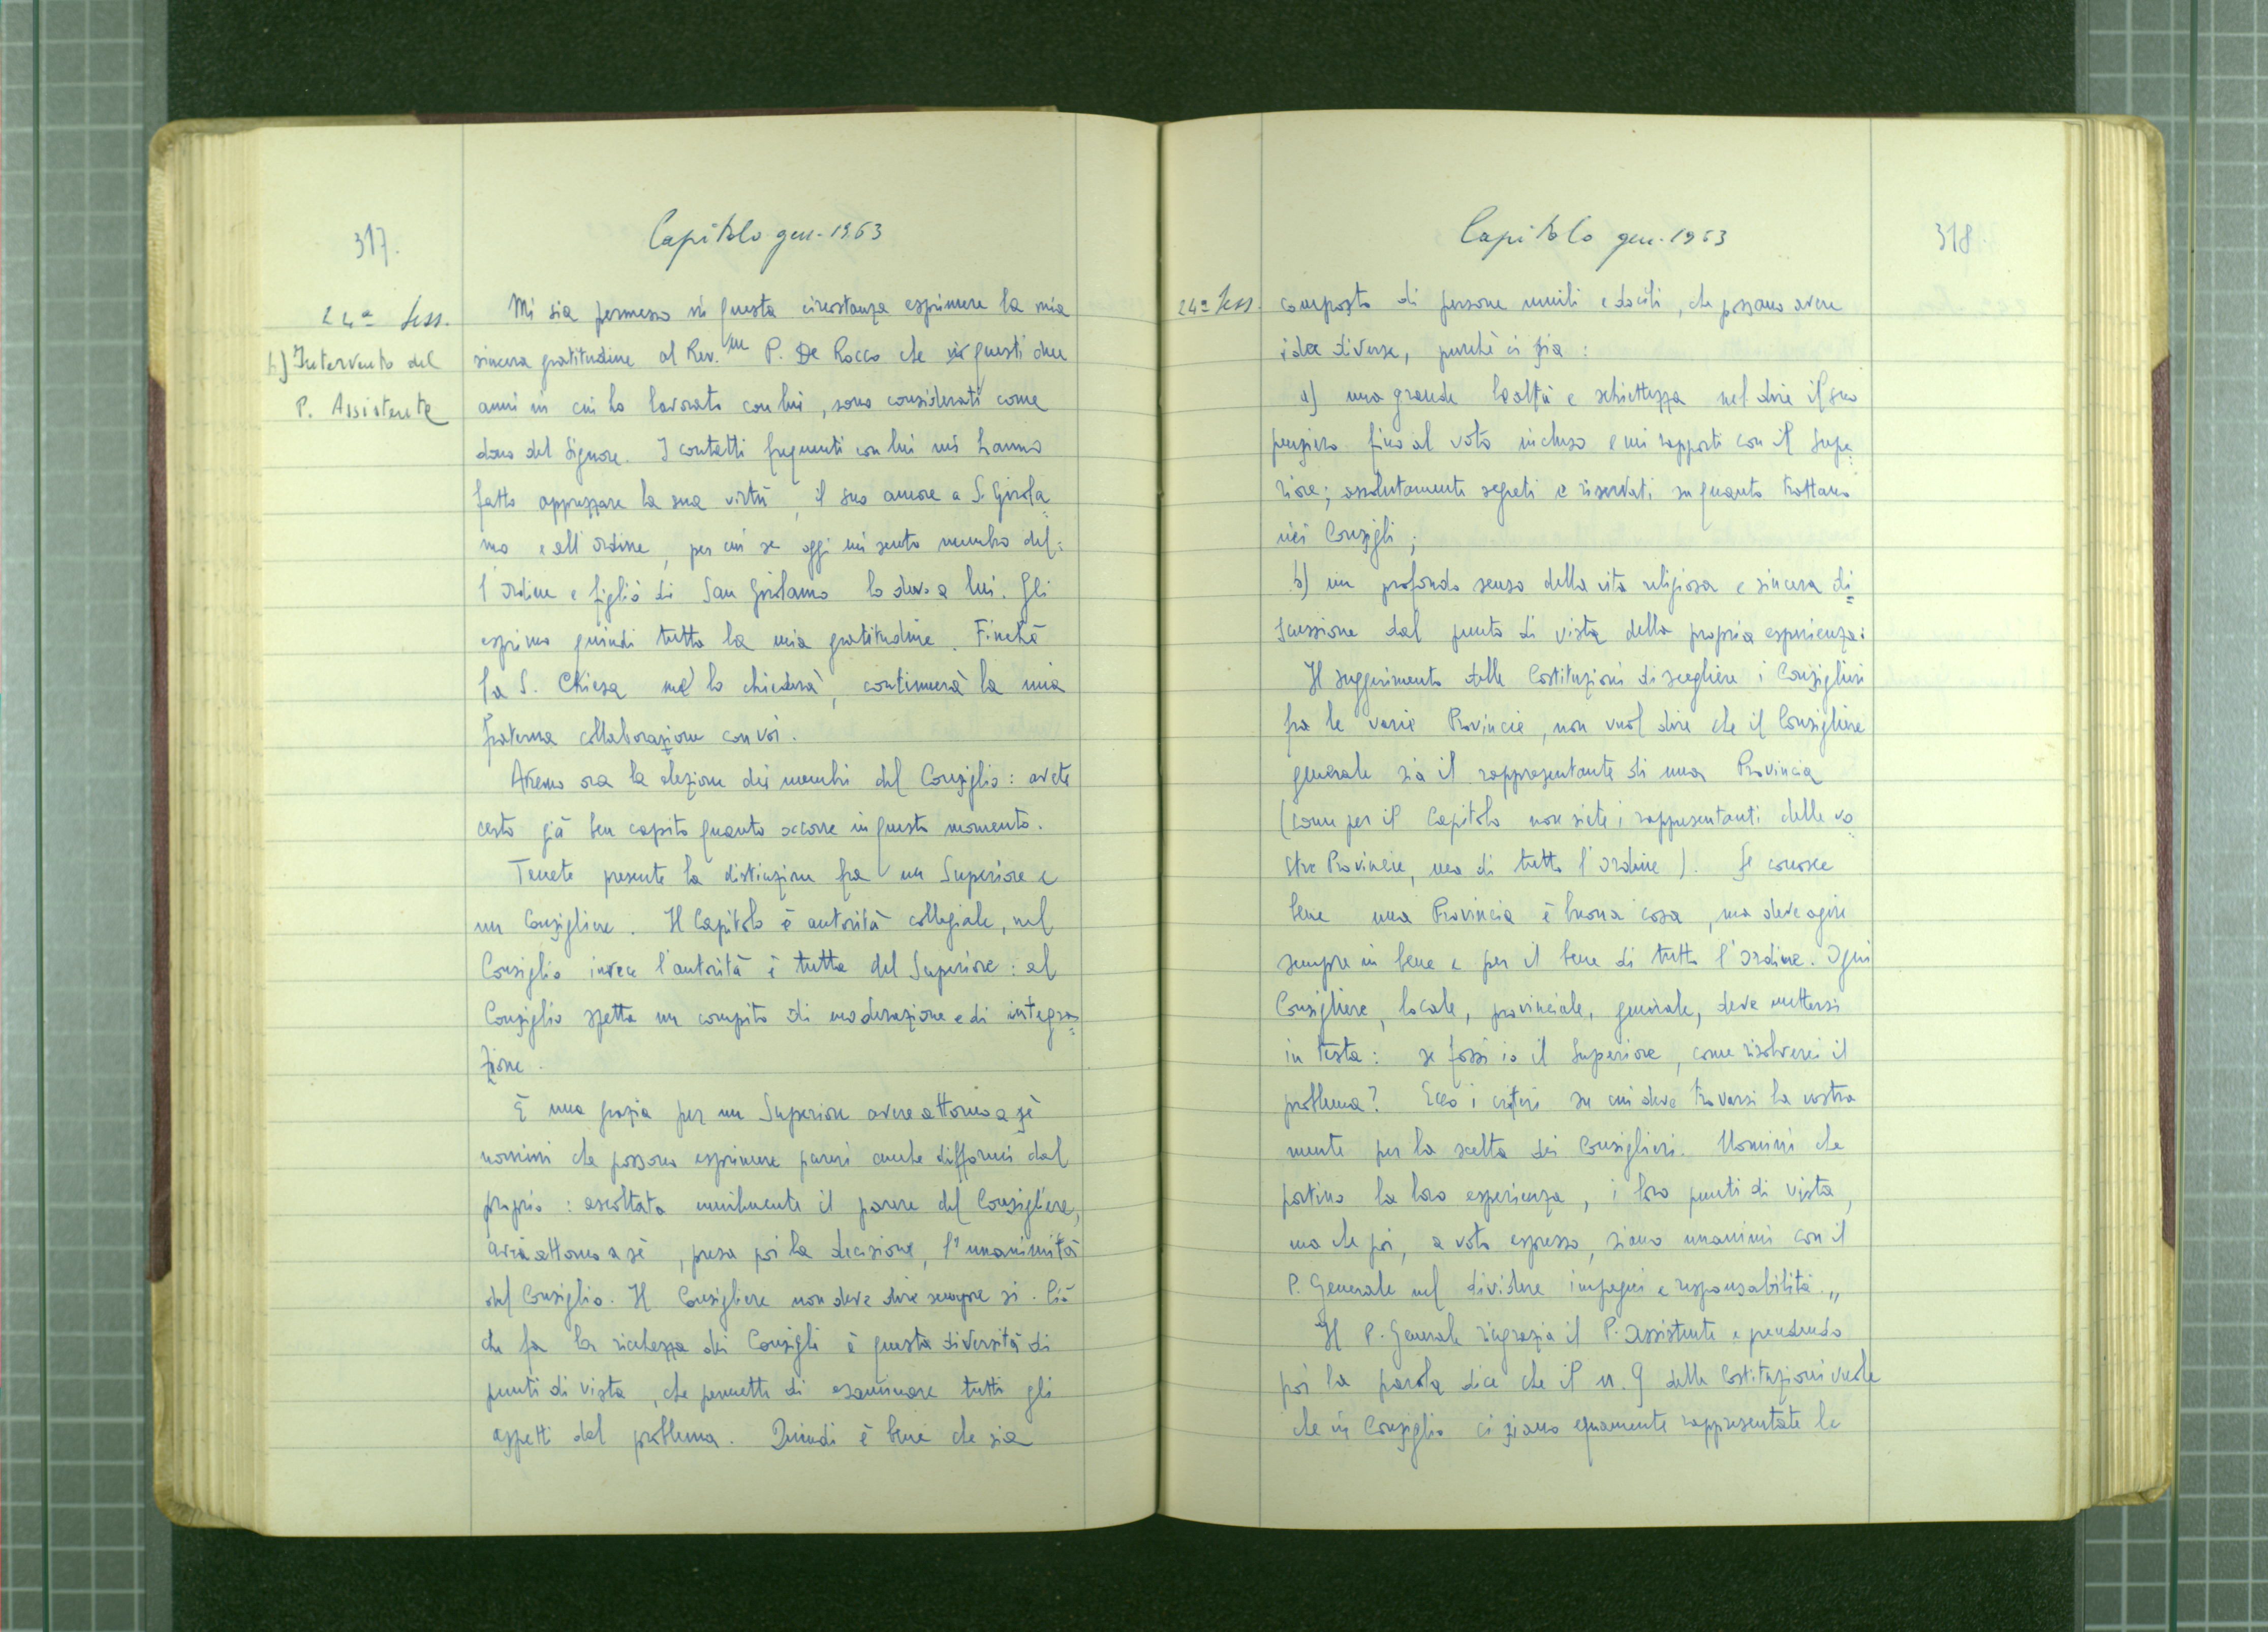 317.
Capitolo gen. 1963
24ª Sess.
b) Intervento del
P. Assistente
Mi sia permesso in questa circostanza esprimere la mia
sincera gratitudine al Rev.mo P. De Rocco che in questi due
anni in cui ho lavorato con lui, sono considerati come
dono del Signore. I contatti frequenti con lui mi hanno
fatto apprezzare la sua virtù, il suo amore a S. Girola=
mo e all'Ordine, per cui se oggi mi sento membro del=
l'Ordine e figlio di San Girolamo lo devo a lui. Gli
esprimo quindi tutta la mia gratitudine. Finchè
la S. Chiesa me lo chiederà, continuerà la mia
fraterna collaborazione con voi.
Avremo ora la elezione dei membri del Consiglio: avete
certo già ben capito quanto occorre in questo momento.
Tenete presente la distinzione fra un Superiore e
un Consigliere. Il Capitolo è autorità collegiale, nel
Consiglio invece l'autorità è tutta del Superiore: al
Consiglio spetta un compito di moderazione e di integra=
zione.
È una grazia per un Superiore avere attorno a sè
uomini che possono esprimere pareri anche difformi dal
proprio: ascoltato umilmente il parere del Consigliere,
avrà attorno a sè, presa poi la decisione, l'unanimità
del Consiglio. Il Consigliere non deve dire sempre si. Ciò
che fa la ricchezza dei Consigli è questa diversità di
punti di vista, che permette di esaminare tutti gli
aspetti del problema. Quindi è bene che sia
Capitolo gen. 1963
318.
24ª Sess.
composto di persone umili e docili, che possano avere
idee diverse, purchè ci sia:
a) una grande lealtà e schiettezza nel dire il suo
pensiero fino al voto incluso e nei rapporti con il Supe=
riore; assolutamente segreti e riservati su quanto trattano
nei Consigli;
b) un profondo senso della vita religiosa e sincera di=
scussione dal punto di vista della propria esperienza:
Il suggerimento delle Costituzioni di scegliere i Consiglieri
fra le varie Provincie, non vuol dire che il Consigliere
generale sia il rappresentante di una Provincia
(come per il Capitolo non siete i rappresentanti delle vo=
stre Provincie, ma di tutto l'Ordine). Se conosce
bene una Provincia è buona cosa, ma deve agire
sempre in bene e per il bene di tutto l'Ordine. Ogni
Consigliere, locale, provinciale, generale, deve mettersi
in testa: se fossi io il Superiore, come risolverei il
problema? Ecco i criteri su cui deve trovarsi la vostra
mente per la scelta dei Consiglieri. Uomini che
portino la loro esperienza, i loro punti di vista,
ma che poi, a voto espresso, siano unanimi con il
P. Generale nel dividere impegni e responsabilità."
Il P. Generale ringrazia il P. Assistente e prendendo
poi la parola dice che il n. 9 delle Costituzioni vuole
che in Consiglio ci siano equamente rappresentate le